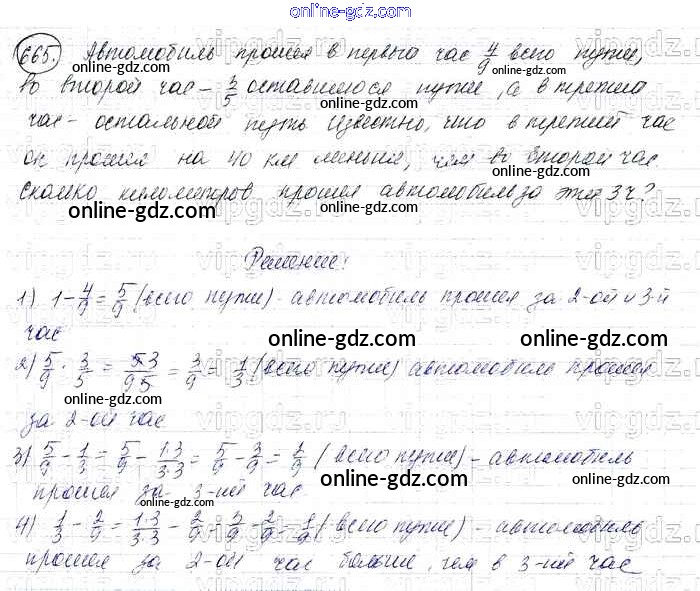 online-gdz.com
665. Автомобиль прошел в первый час 4/9 всего пути,
во второй час - 3/5 оставшегося пути, а в третий
online-gdz.com online-gdz.com
час - остальной путь. Известно, что в третий час
он прошел на 40 км меньше, чем во второй час.
online-gdz.com online-gdz.com
Сколько километров прошел автомобиль за эти 3ч?
online-gdz.com online-gdz.com
Решение:
1) 1 - 4/9 = 5/9 (всего пути) - автомобиль прошел за 2-ой и 3-й
час
online-gdz.com online-gdz.com
2) 5/9 · 3/5 = 5·3/9·5 = 3/9 = 1/3 (всего пути) автомобиль прошел
online-gdz.com online-gdz.com
за 2-ой час
3) 5/9 - 1/3 = 5/9 - 1·3/3·3 = 5/9 - 3/9 = 2/9 (всего пути) - автомобиль
online-gdz.com online-gdz.com
прошел за 3-ий час
4) 1/3 - 2/9 = 1·3/3·3 - 2/9 = 3/9 - 2/9 = 1/9 (всего пути) - автомобиль
online-gdz.com online-gdz.com
прошел за 2-ой час больше, чем в 3-ий час